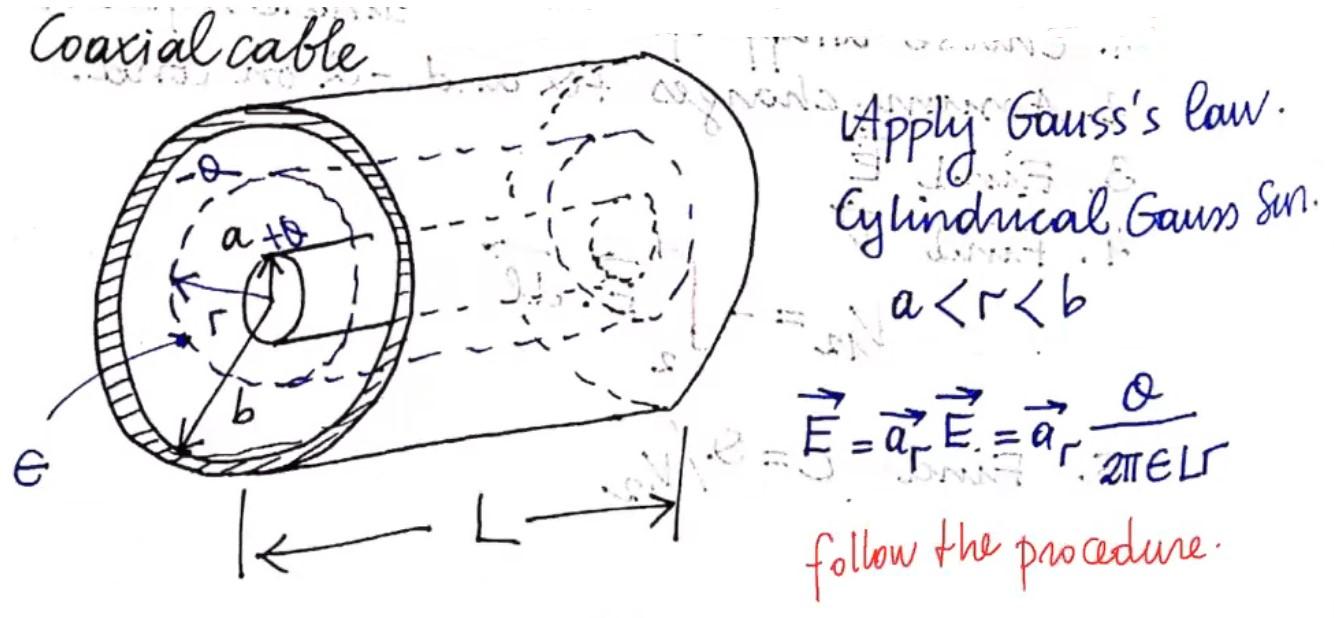 Coaxial cable
Apply Gauss's law.
Cylindrical Gauss Sur.
a < r < b
-Q
a +Q
r
b
ϵ
L
\vec{E} = \vec{a}_r \vec{E}. = \vec{a}_r \frac{Q}{2πϵLr}
follow the procedure.